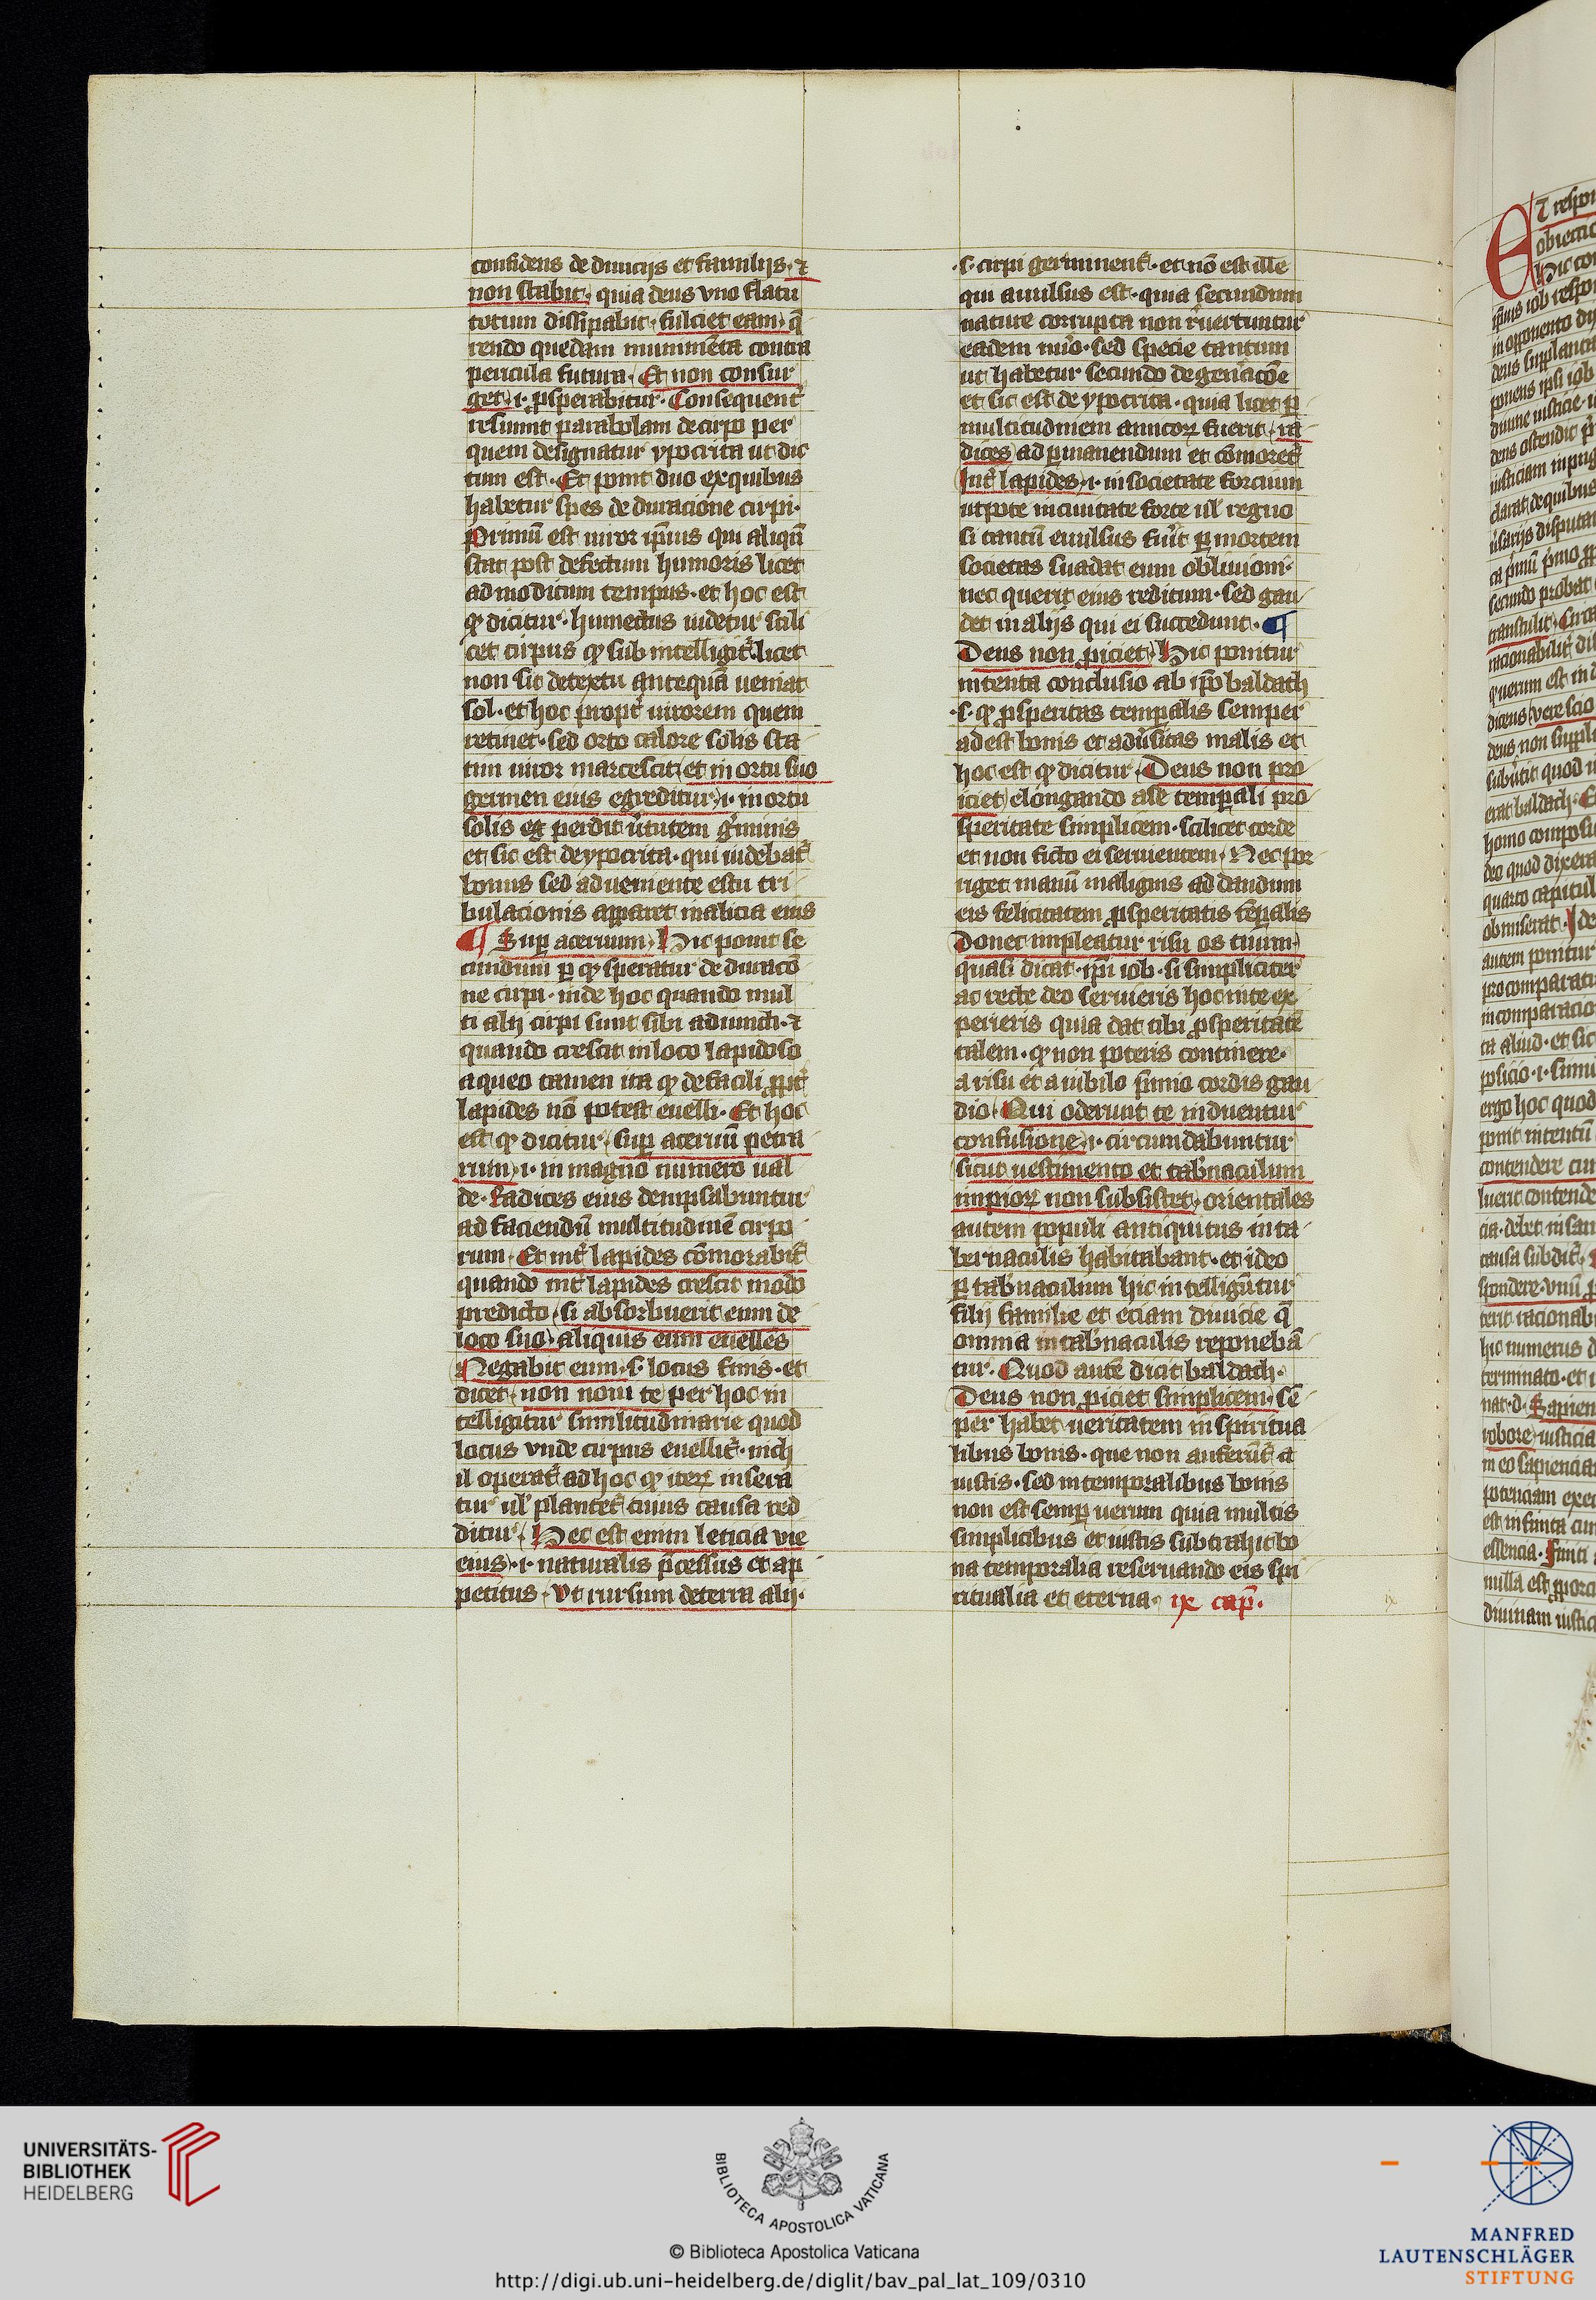 confidens de diuicijs et familijs · ⁊
non stabit · quia deus vno flatu
totum dissipabit · fulciet eam · q̄
rendo quedam munimēta contra
pericula futura · Et non consur
get · i · ꝓsperabitur · Consequent̾
resumit parabolam de cirpo per
quem designatur ypocrita ut dic
tum est · Et ponit duo ex quibus
habetur spes de duracione cirpi ·
Primū est uiror ip̄ius qui aliqn̄
stat post defectum humoris licet
ad modicum tempus · et hoc est
ꝙ dicitur · humectus uidetur scili
cet cirpus ꝙ sub intelligit̾ · licet
non sit de textu antequā ueniat
sol · et hoc propt̾ uirorem quem
retinet · sed orto calore solis sta
tim uiror marcescit et in ortu suo
germen eius egreditur · i · in ortu
solis et perdit ūtutem g̾minis
et sic est de ypocrita · qui uidebat̾
bonus sed adueniente estu tri
bulacionis apparet malicia eius
¶ Suꝑ aceruum · Hic ponit se
cundum ꝑ ꝙ speratur de duracō
ne cirpi · inde hoc quando mul
ti alij cirpi sunt sibi adiuncti · ⁊
quando crescit in loco lapidoso
aqueo tamen ita ꝙ de facili ꝓpt̾
lapides nō potest euelli · Et hoc
est ꝙ dicitur · suꝑ aceruū petra
rum · i · in magno numero ual
de · Radices eius dempsabuntur
ad faciendū multitudinē cirpo
rum · Et int̾ lapides cōmorabit̾
quando int̾ lapides crescit modo
predicto · si absorbuerit eum de
loco suo · aliquis eum euelles
Negabit eum · s · locus eius · et
dicet · non noui te per hoc in
telligitur similitudinarie quod
locus vnde cirpus euellit̾ · nich
il operat̾ ad hoc ꝙ iteꝝ insera
tur ul̾ plantet̾ cuius causa red
ditur · Hec est enim leticia vie
eius · i · naturalis p̄cessus et ap
petitus · Vt rursum de terra alij ·
· s · cirpi germinent̾ · et nō est ille
qui auulsus est · quia secundum
nature corrupta non r̾uertuntur
eadem nūo · sed specie tantum
ut habetur secundo de gen̾acōe
et sic est de ypocrita · quia licet ꝑ
multitudinem amicoꝝ fuerit · ra
dices ad ꝑmanendum et cōmoret̾
Int̾ lapides · i · in societate forcium
utpote in ciuitate forte ul̾ regno
si tantū euulsus fu̾it ꝑ mortem
societas suadat eum obliuioni ·
nec querit eius reditum · sed gau
det in alijs qui ei succedunt · ¶
Deus non ꝓiciet · Hic ponitur
intenta conclusio ab ip̄o baldach
· s · ꝙ ꝓsperitas temꝑalis semper
adest bonis et adu̾sitas malis et
hoc est ꝙ dicitur · Deus non pro
iciet elongando a se temꝑali pro
speritate simplicem · scilicet corde
et non ficto ei seruientem · Nec por
riget manū malignis ad dandum
eis felicitatem ꝓsperitatis tēꝑalis
Donec impleatur risu os tuum ·
quasi dicat · ip̄i iob · si simpliciter
ac recte deo seruieris hoc in te ex
perieris quia dat tibi ꝓsperitatē
talem · ꝙ non poteris continere ·
a risu et a iubilo sūmo cordis gau
dio · Qui oderunt te induentur
confusione · i · circumdabuntur
sicut uestimento et tab̾naculum
impioꝝ non subsistet · orientales
autem populi antiquitus in ta
bernaculis habitabant · et ideo
ꝑ tab̾naculum hic intelligūtur
filij familie et eciam diuicie q̄
omnia in tab̾naculis reponebā
tur · Quod autē dicit baldach ·
Deus non ꝓiciet simplicem · sē
per habet ueritatem in spiritua
libus bonis · que non auferūt̾ a
iustis · sed in temporalibus bonis
non est semꝑ uerum quia multis
simplicibus et iustis subtrahit bo
na temporalia reseruando eis spi
ritualia et eterna · ix cap̄ ·
ix
UNIVERSITÄTS-
BIBLIOTHEK
HEIDELBERG
BIBLIOTECA APOSTOLICA VATICANA
© Biblioteca Apostolica Vaticana
http://digi.ub.uni-heidelberg.de/diglit/bav_pal_lat_109/0310
MANFRED
LAUTENSCHLÄGER
STIFTUNG